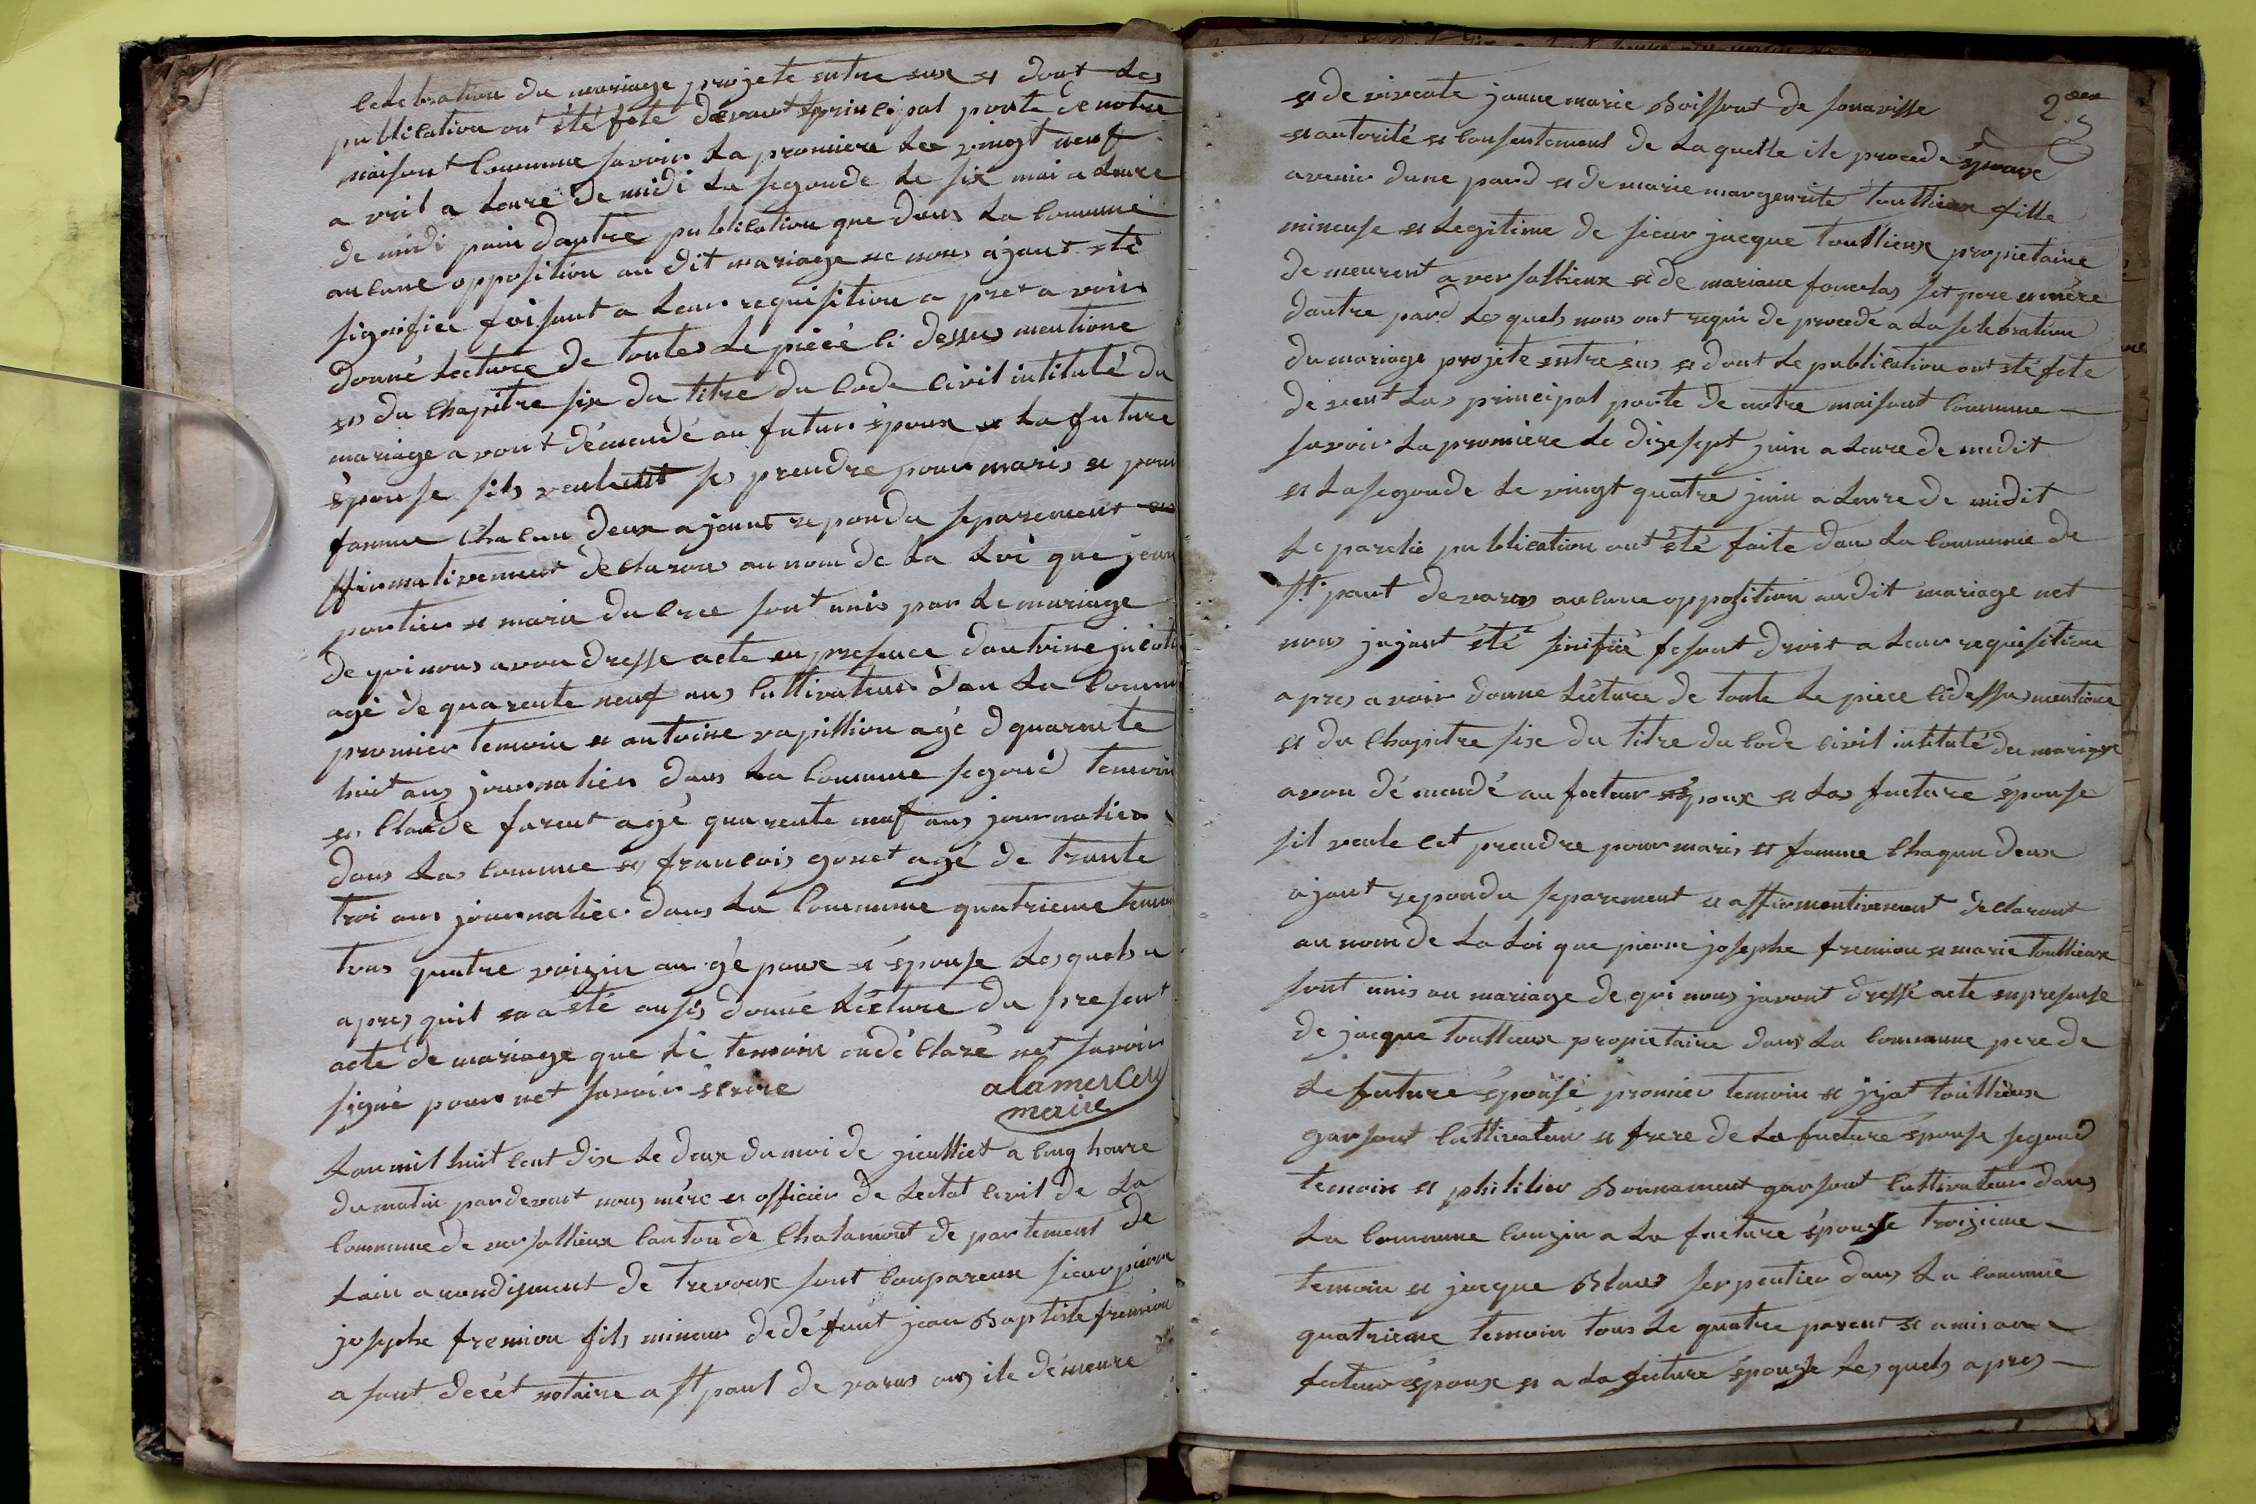 celebration du mariage projete entre eux et dont les
publication ont été fete devant principal porte de notre
maisont commune savoir la promiere le vingt neuf
avril a leure de midi la segonde le six mai a leure
de midi poin dautre publication que dans la commune
aucune opposition au dit mariage ne nous ajant été
signifiee foisant a leur requisition apret avoir
donné lecture de toutes le piecé ci dessus mentione
et du chapitre six du titre du code civil intitulé du
mariage avont démendé au futur époux et la future
épouse sils veulent se prendre pour maris et pour
famme chacun deux ajant reponda separement
ffirmativement declarons au nom de la loi que
et marie sont unis par le mariage
de qui nous avon dresse acte en presence dantoine
agé de quarente neuf ans cultivateur dan la
promier temoin et antoine vapillion agé d quarente
huit ans journalier dans la commune segond temoin
et claude farent agé quarente neuf ans journalier
dans la commune et francois gonet agé de trante
troi ans journalier dans la commune quatrieme
tous quatre voizin au époux et épouse lesquels a
apres quil en a été ausis donné lecture du present
acte de mariage que lé temoin ondéclaré net savoir
signé pour net savoir écrire
alamercery
maire
Lan mil huit cent dix le deux du moi de jieulliet a cinq houre
du matin pardevant nous mére et officier de lectat civil de la
commune de versallieux canton de chalamont de partement de
lain arondisment de trevoux sont conpareux sieur pierre
josephe fremion fils mineur de défunt jean Baptiste fremion
a sont decét notaire a st paul de varas ou ile démeure
2
et de vivente janne marie Boissont de sonavisse
et autorité et consentement de laquelle ile procede époux
avenir dune pard et de marie margeurite toullieux fille
mineuse et legitime de sieur jacque toullieux propietaire
de meurent a versallieux et de mariane set pere et mére
dautre pard lesquels nous ont requi de procede a la selebration
du mariage projete entre eus et dont le publication ont été fete
devent las principal porte de notre maisont commune
savoir la promiere le dizesept juin a leure de midit
et la segonde le vingt quatre juin a leure de midit
le parelie publication ont été faite dans la commune de
st paul de varas aucune opposition audit mariage net
nous jajant été sinifié fesant droit a leur requisition
apres avoir donne lecture de toute le piece cidessus mentione
et du chapitre six du titre du code civil intitulé du mariage
avon démendé au fucteur époux et las fucture épouse
sil veule cet prendre pour maris et famme chaqun deux
ajant repondu separement et affirmentivement declaront
au nom de la loi que pierre josephe fremion et marie toullieux
sont unis au mariage de qui nous javont dressé acte enpresense
de jacque toullieux propietaire dans la commune pere de
le future épouse promier temoin et toullieux
garsont cultivateur et frere de la fucture épouse segond
temoin et philibier Bonnament garsont cultivateur dans
la commune couzin a la fucture épouse troizieme
temoin et jacque Blanc serpentier dans la commune
quatrieme temoin tous le quatre parent et amis au
fucteur épouse et a la fucture épouse lesquels apres